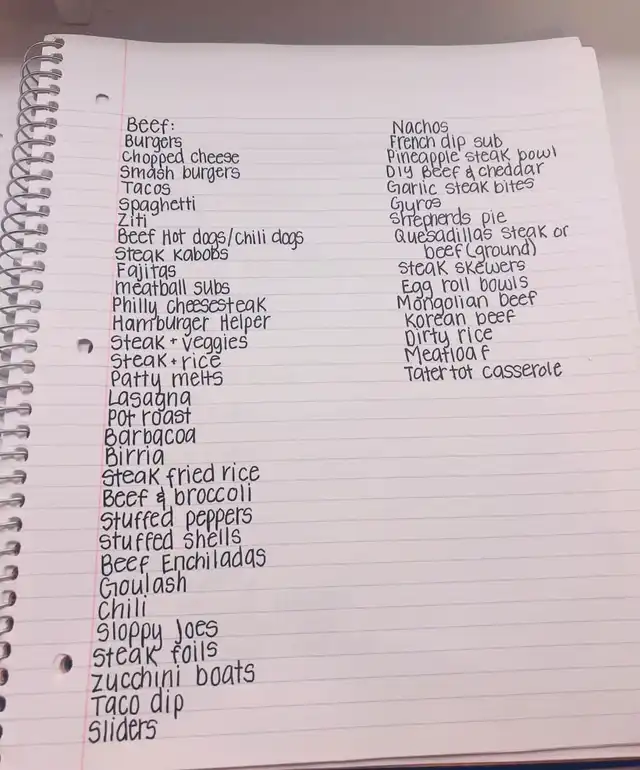 Beef:
Burgers
Chopped cheese
Smash burgers
Tacos
Spaghetti
Ziti
Beef Hot dogs/Chili dogs
Steak Kabobs
Fajitas
meatball subs
Philly cheesesteak
Hamburger Helper
Steak + veggies
Steak + rice
Patty melts
Lasagna
Pot roast
Barbacoa
Birria
Steak fried rice
Beef & broccoli
Stuffed peppers
Stuffed shells
Beef Enchiladas
Goulash
Chili
Sloppy Joes
Steak foils
Zucchini boats
Taco dip
Sliders
Nachos
French dip sub
Pineapple steak bowl
DIY Beef & cheddar
Garlic steak bites
Gyros
Shepherds pie
Quesadillas steak or
beef (ground)
Steak skewers
Egg roll bowls
Mongolian beef
Korean beef
Dirty rice
Meatloaf
Tater tot casserole